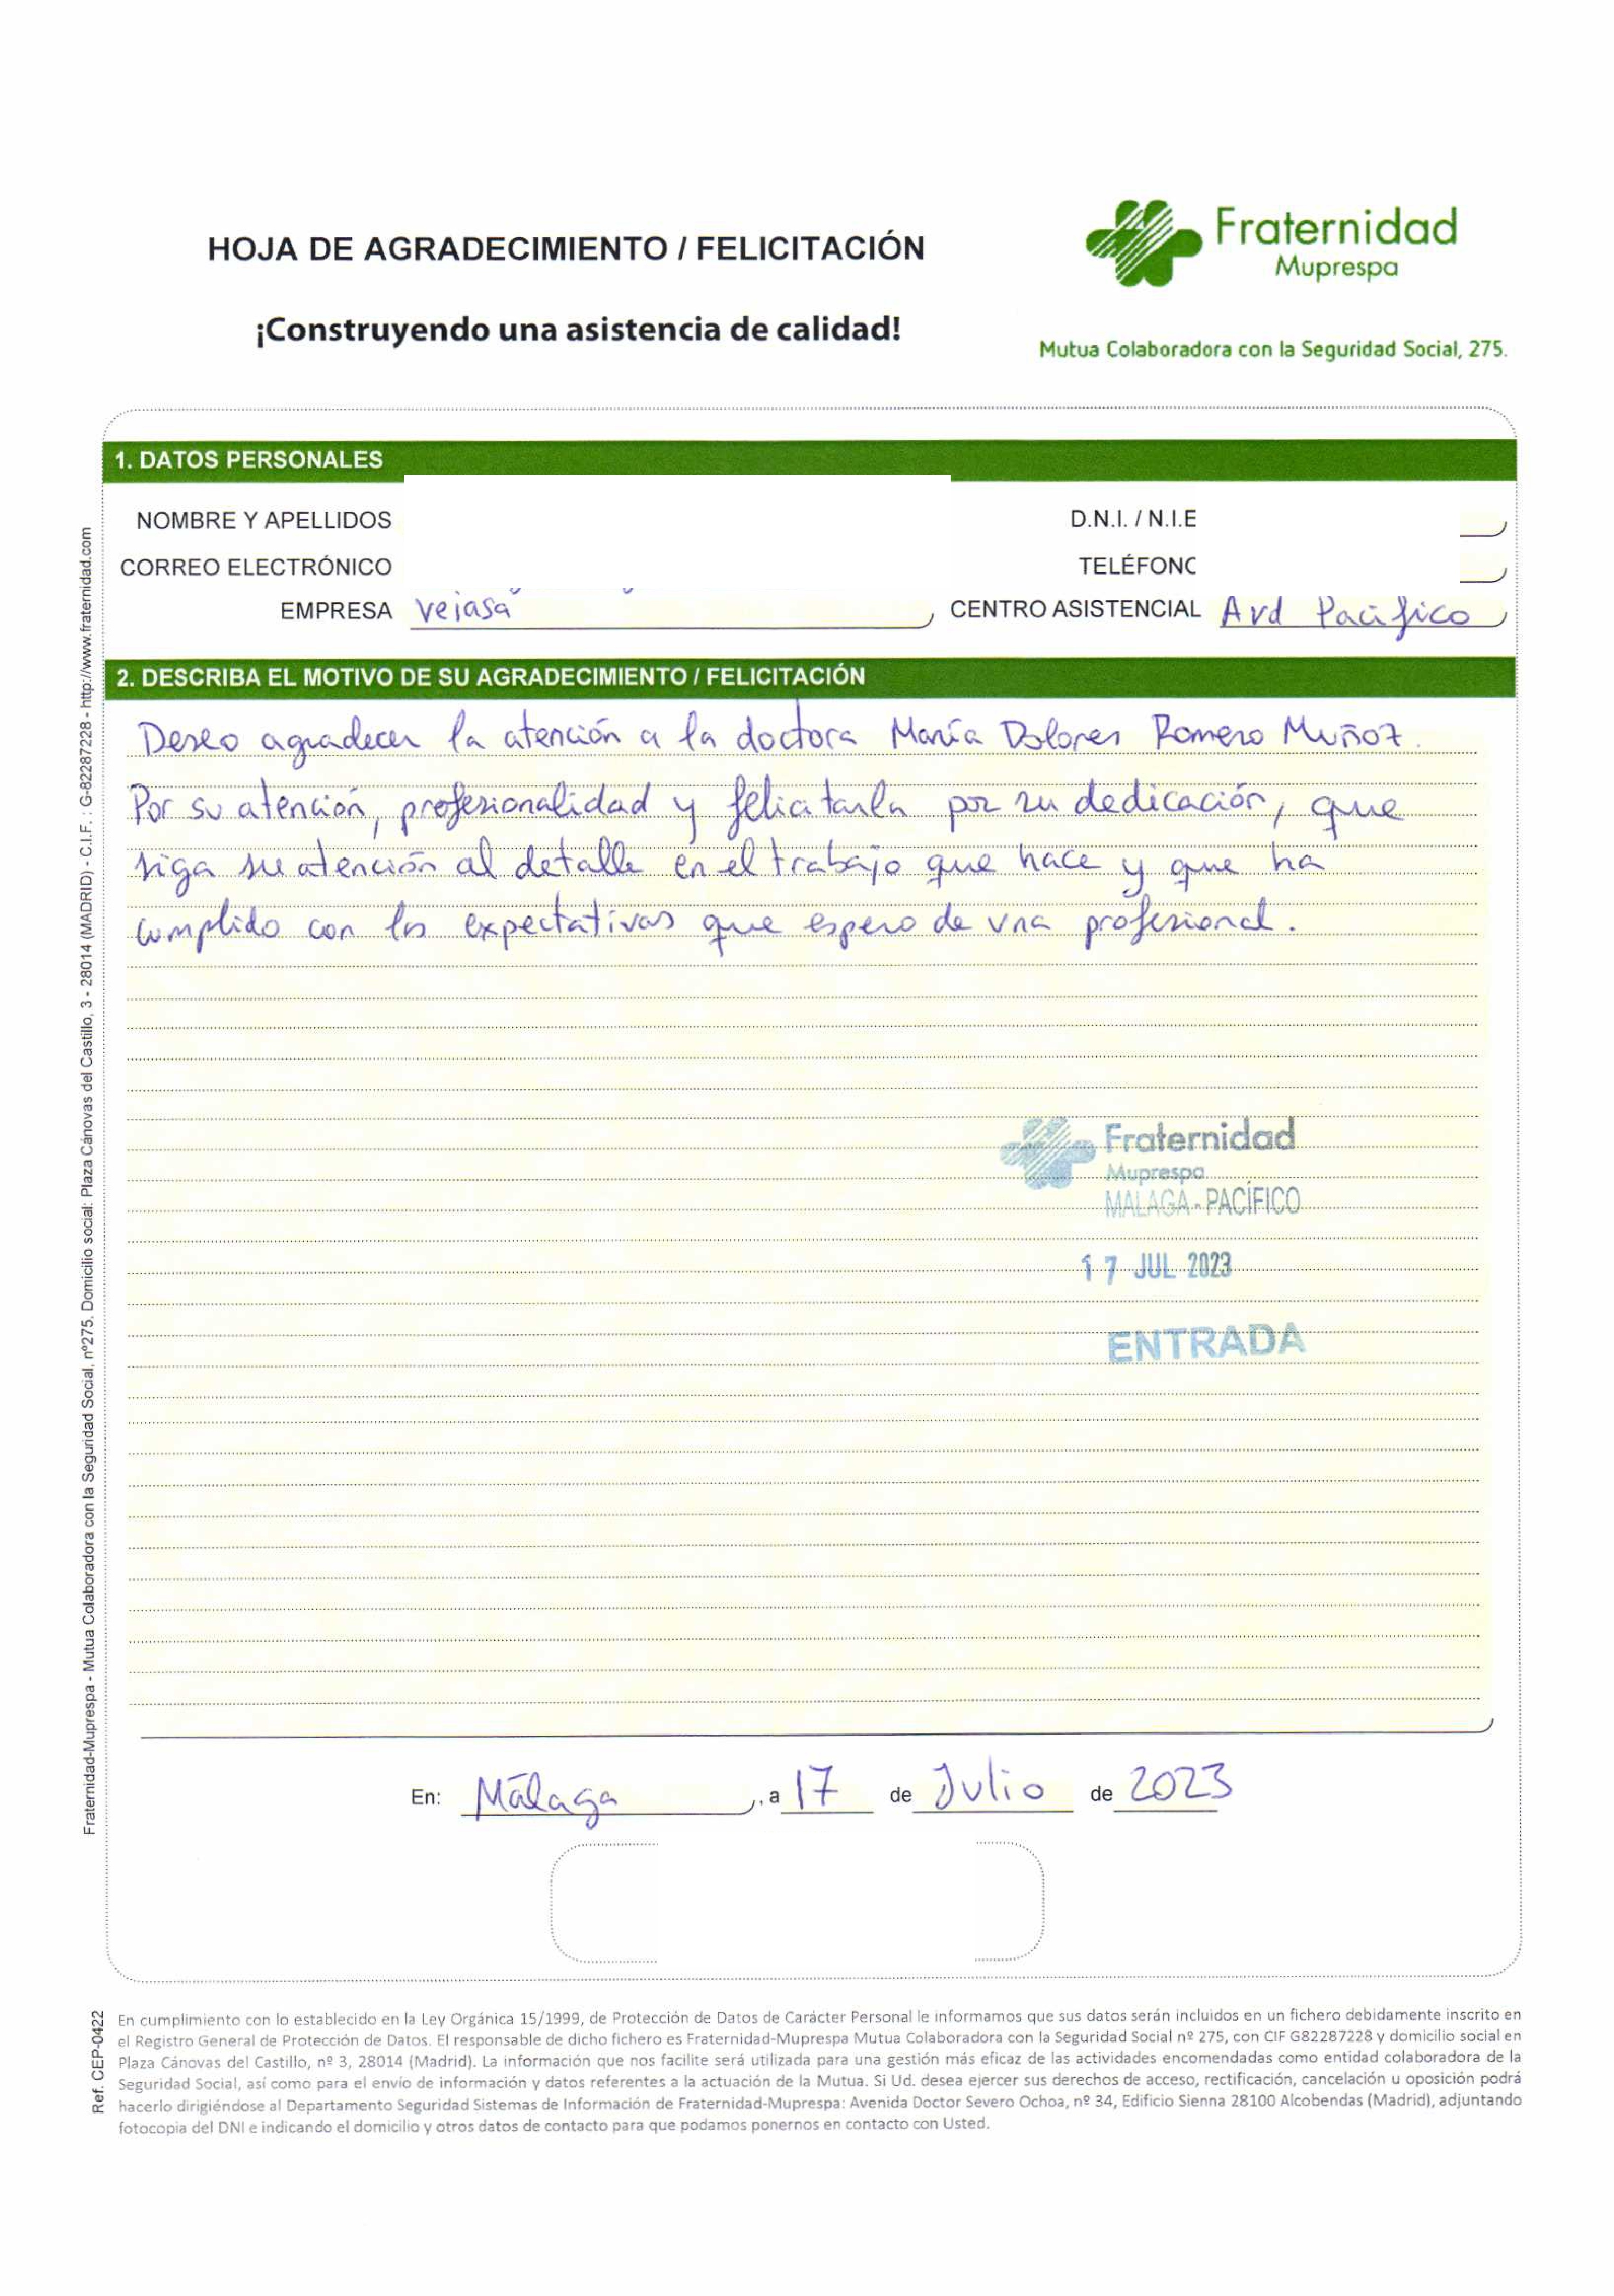 HOJA DE AGRADECIMIENTO / FELICITACIÓN
¡Construyendo una asistencia de calidad!
Fraternidad
Muprespa
Mutua Colaboradora con la Seguridad Social, 275.
1. DATOS PERSONALES
NOMBRE Y APELLIDOS
D.N.I. / N.I.E
CORREO ELECTRÓNICO
TELÉFONO
EMPRESA veiasa
CENTRO ASISTENCIAL Avd Pacifico
2. DESCRIBA EL MOTIVO DE SU AGRADECIMIENTO / FELICITACIÓN
Deseo agradecer la atención a la doctora María Dolores Romero Muñoz.
Por su atención, profesionalidad y felicitarla por su dedicación, que
siga su atención al detalle en el trabajo que hace y que ha
cumplido con las expectativas que espero de una profesional.
Fraternidad
Muprespa
MALAGA - PACÍFICO
17 JUL 2023
ENTRADA
En: Málaga, a 17 de Julio de 2023
Fraternidad-Muprespa - Mutua Colaboradora con la Seguridad Social, nº275. Domicilio social: Plaza Cánovas del Castillo, 3 - 28014 (MADRID) - C.I.F. : G-82287228 - http://www.fraternidad.com
Ref. CEP-0422
En cumplimiento con lo establecido en la Ley Orgánica 15/1999, de Protección de Datos de Carácter Personal le informamos que sus datos serán incluidos en un fichero debidamente inscrito en
el Registro General de Protección de Datos. El responsable de dicho fichero es Fraternidad-Muprespa Mutua Colaboradora con la Seguridad Social nº 275, con CIF G82287228 y domicilio social en
Plaza Cánovas del Castillo, nº 3, 28014 (Madrid). La información que nos facilite será utilizada para una gestión más eficaz de las actividades encomendadas como entidad colaboradora de la
Seguridad Social, así como para el envío de información y datos referentes a la actuación de la Mutua. Si Ud. desea ejercer sus derechos de acceso, rectificación, cancelación u oposición podrá
hacerlo dirigiéndose al Departamento Seguridad Sistemas de Información de Fraternidad-Muprespa: Avenida Doctor Severo Ochoa, nº 34, Edificio Sienna 28100 Alcobendas (Madrid), adjuntando
fotocopia del DNI e indicando el domicilio y otros datos de contacto para que podamos ponernos en contacto con Usted.